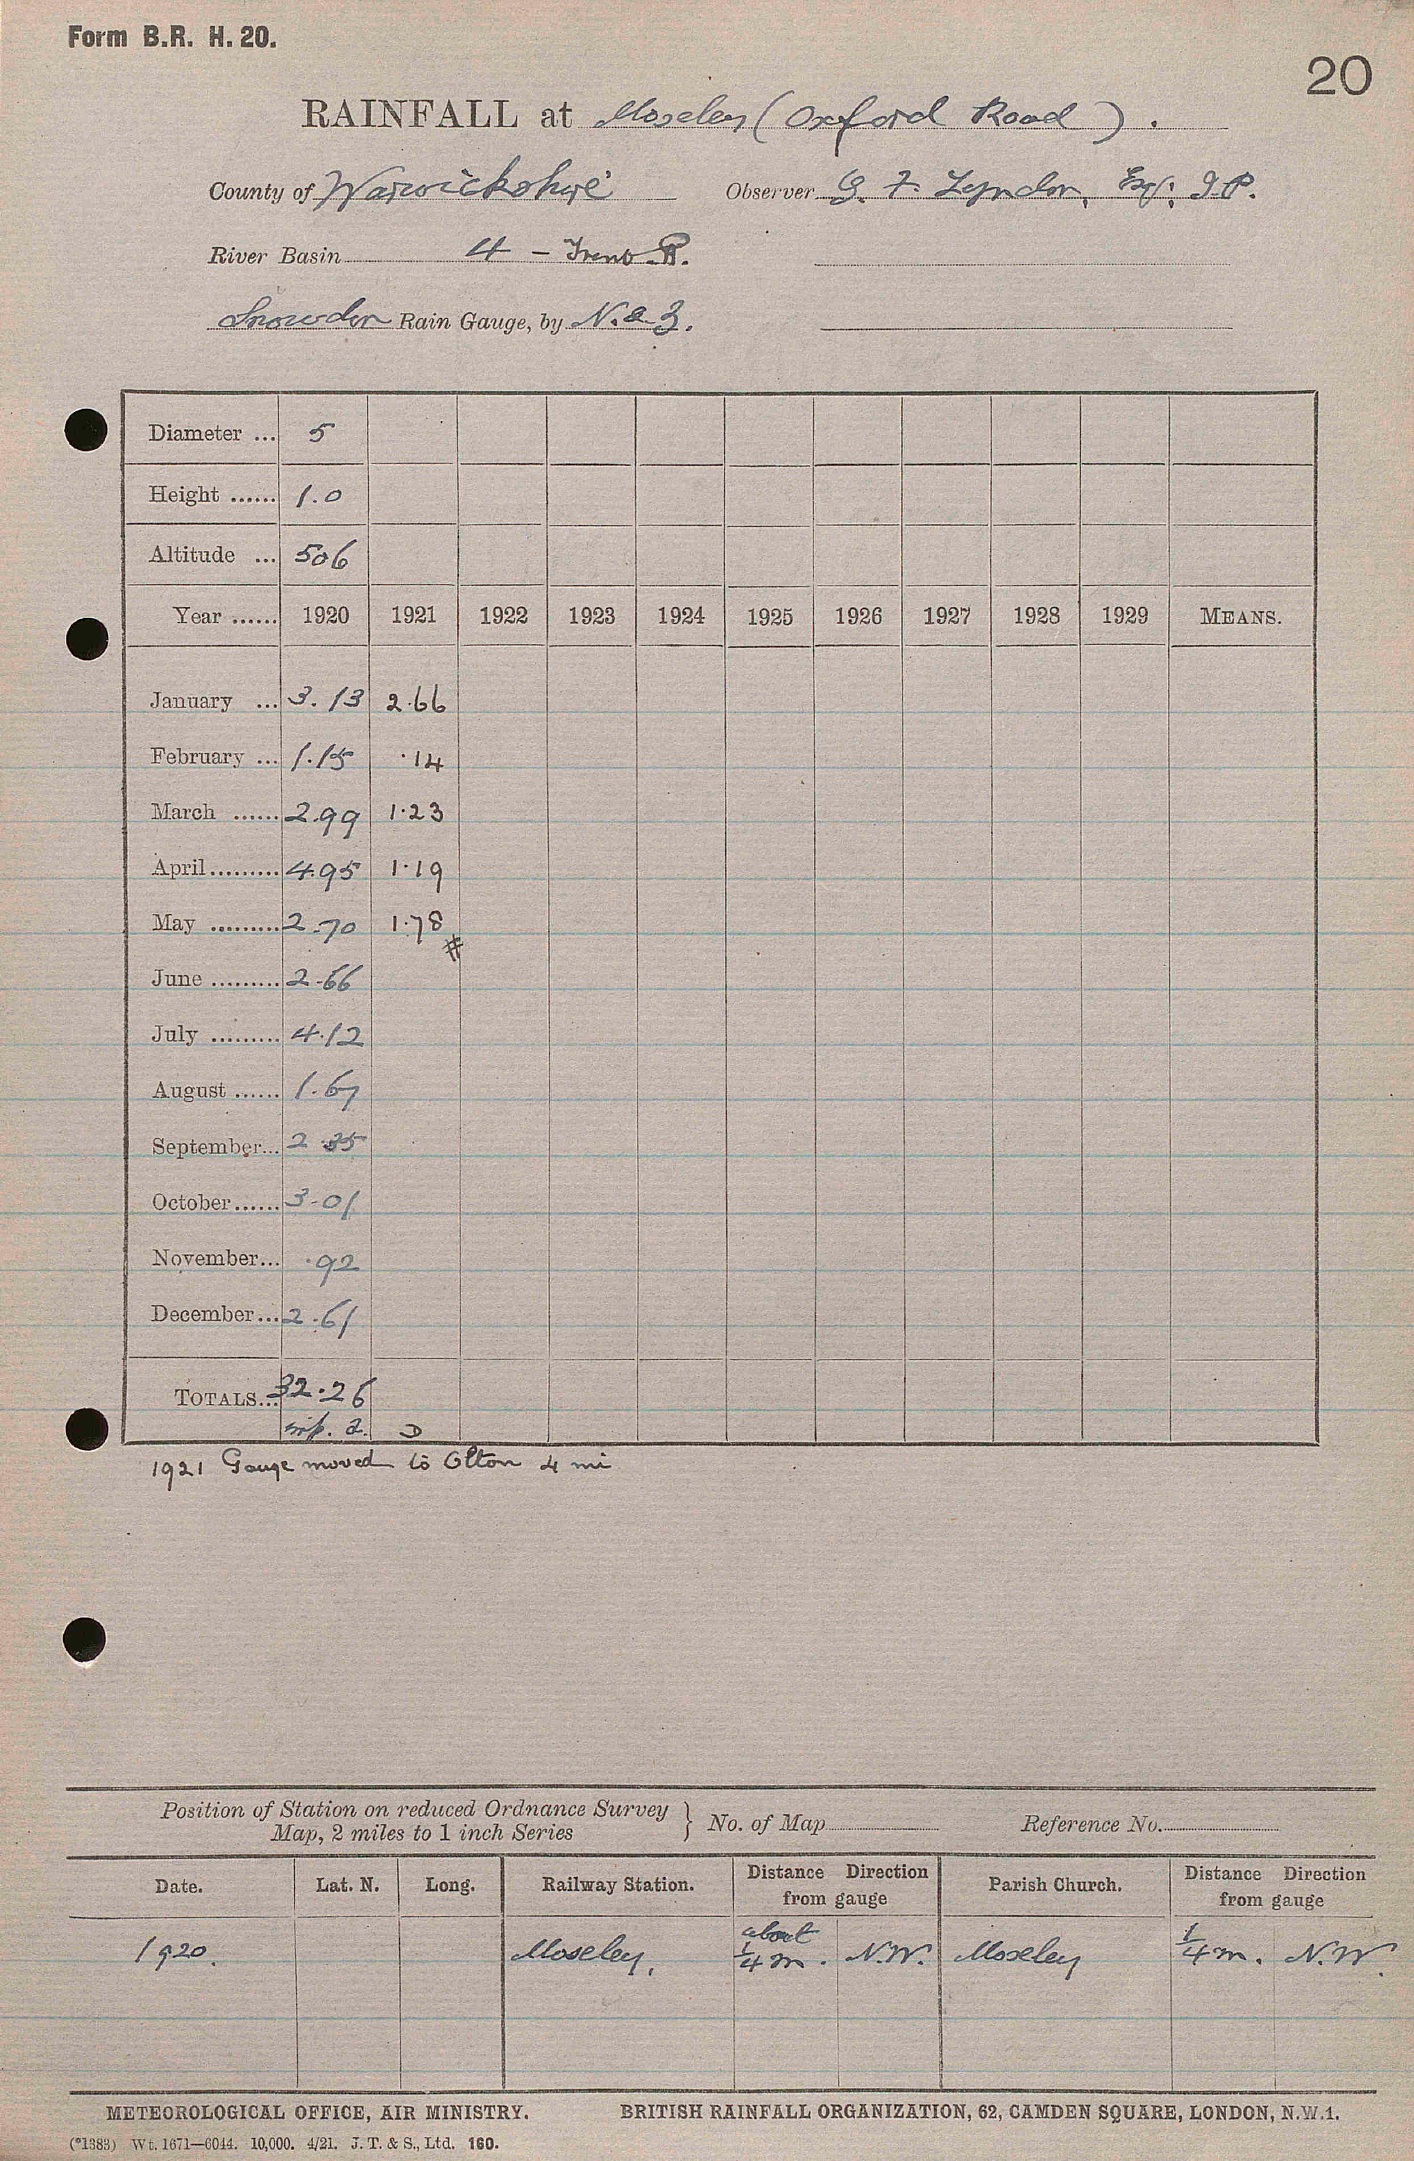 Form B.R. H. 20.
20
RAINFALL at Moseley (Oxford Road).
County of Warwickshire Observer G. F. Lyndon, Esq; J.P.
River Basin 4 - Trent R.
Snowdon Rain Gauge, by N. & Z.
Diameter ... 5
Height ...... 1.0
Altitude ... 506
Year ...... 1920 1921 1922 1923 1924 1925 1926 1927 1928 1929 MEANS.
January ... 3.13 2.66
February ... 1.15 .14
March ...... 2.99 1.23
April......... 4.95 1.19
May ......... 2.70 1.78 #
June ......... 2.66
July ......... 4.12
August ...... 1.67
September... 2.35
October...... 3.01
November... .92
December... 2.61
TOTALS... 32.26
D
1921 Gauge moved to Olton 4 mi
Position of Station on reduced Ordnance Survey
Map, 2 miles to 1 inch Series } No. of Map Reference No.
Date. Lat. N. Long. Railway Station. Distance Direction from gauge Parish Church. Distance Direction from gauge
1920. Moseley, about 1/4 m. N.W. Moseley 1/4 m. N.W.
METEOROLOGICAL OFFICE, AIR MINISTRY. BRITISH RAINFALL ORGANIZATION, 62, CAMDEN SQUARE, LONDON, N.W.1.
(*1383) Wt. 1671—6044. 10,000. 4/21. J. T. & S., Ltd. 160.